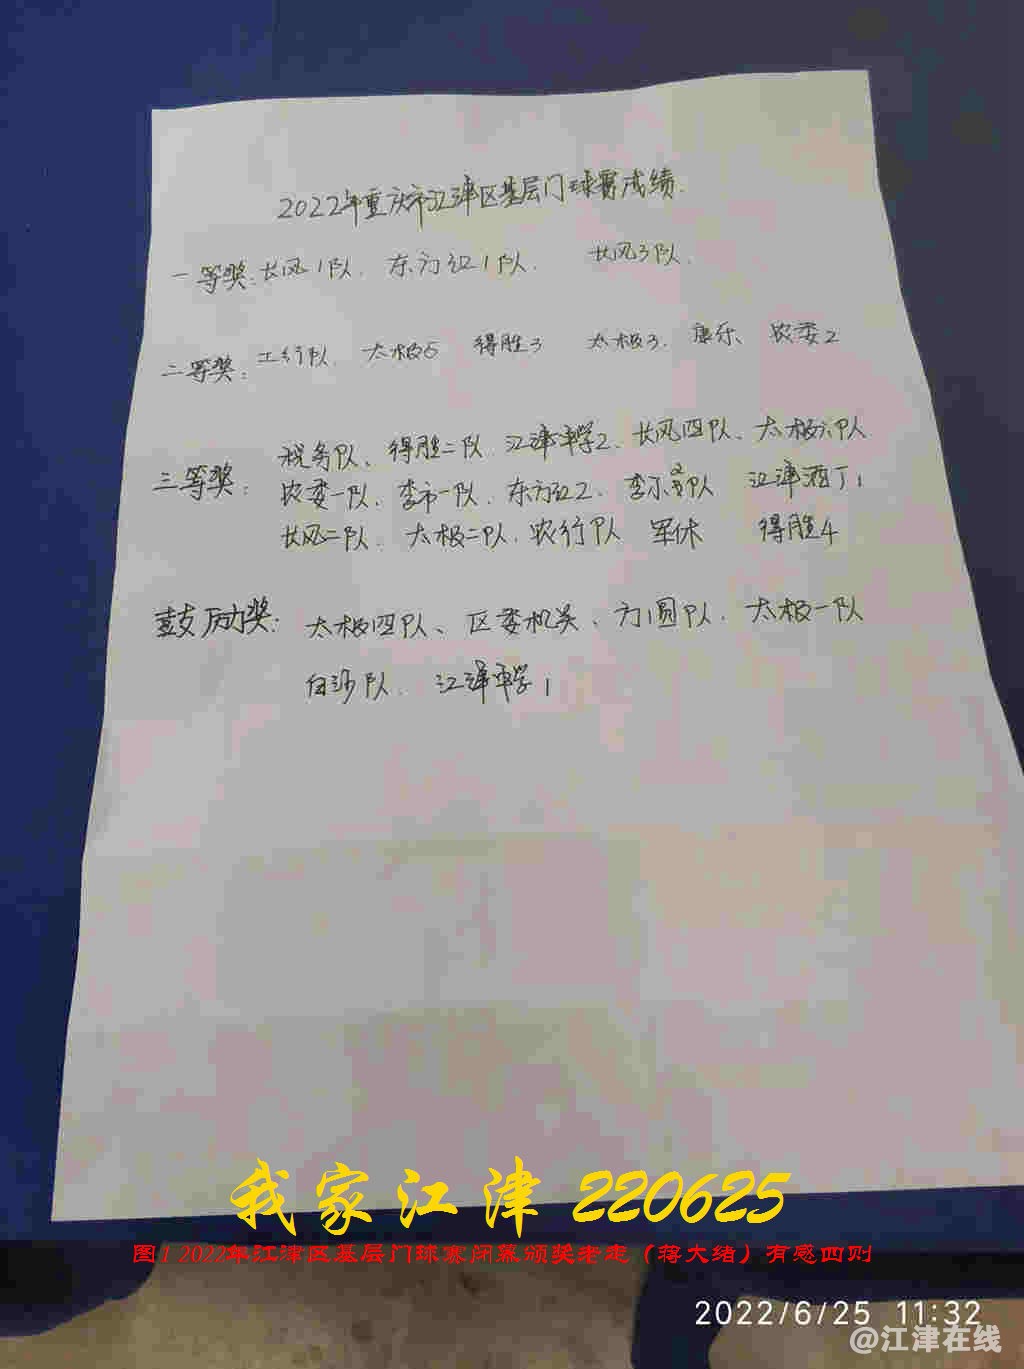 2022年重庆市江津区基层门球赛成绩.
一等奖:长风1队. 东方红1队. 长风3队.
二等奖:工行队、太极5 得胜3 太极3. 康乐、农委2
三等奖:税务队、得胜二队. 江津中学2、长风四队、太极六队
农委一队、李市一队、东方红2、李市2队 江津酒厂1
长风二队. 太极二队. 农行队 军休 得胜4
鼓励奖:太极四队、区委机关、方圆队. 太极一队
白沙队. 江津中学1
我家江津 220625
图1 2022年江津区基层门球赛闭幕颁奖老走（蒋大绪）有感四则
2022/6/25 11:32
@江津在线